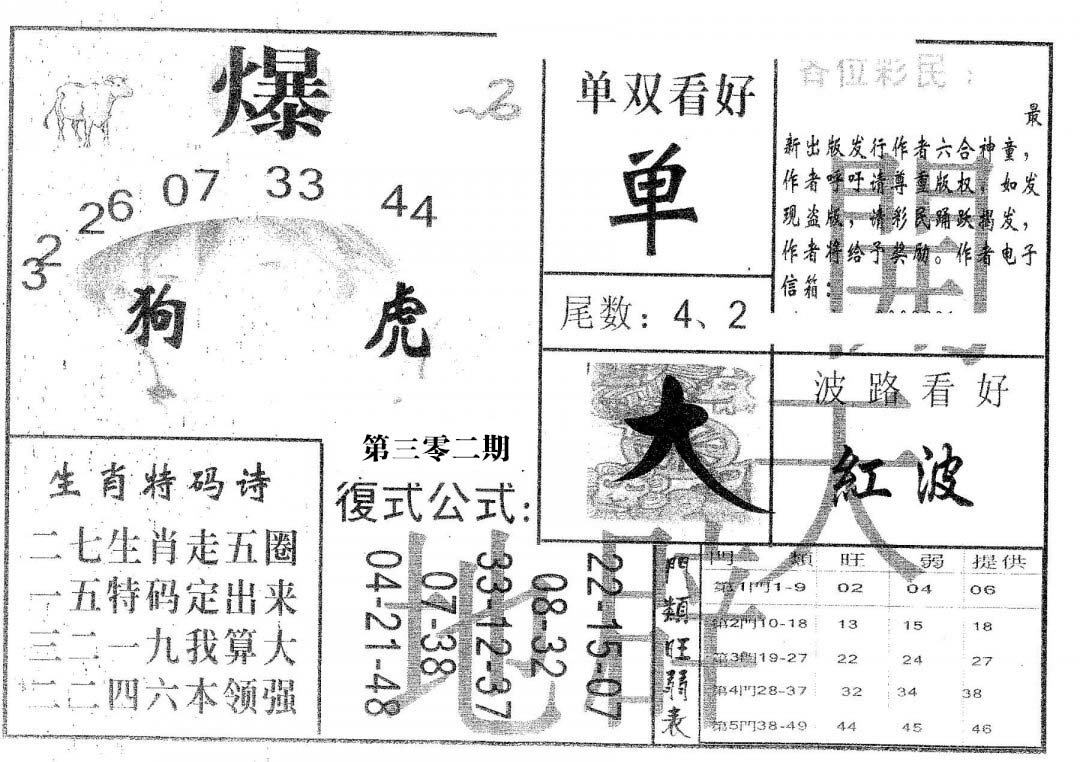 爆
32
26
07
33
44
狗 虎
第三零二期
生肖特码诗
二七生肖走五圈
一五特码定出来
三二一九我算大
二二四六本领强
復式公式:
04-21-48
07-38
33-12-37
08-32
22-15-07
单双看好
单
尾数：4、2
大
各位彩民：
最
新出版发行作者六合神童，
作者呼吁请尊重版权，如发
现盗版，请彩民踊跃揭发，
作者将给予奖励。作者电子
信箱：
波路看好
紅波
門類旺弱表
門 類 旺 弱 提供
第1門1-9 02 04 06
第2門10-18 13 15 18
第3門19-27 22 24 27
第4門28-37 32 34 38
第5門38-49 44 45 46